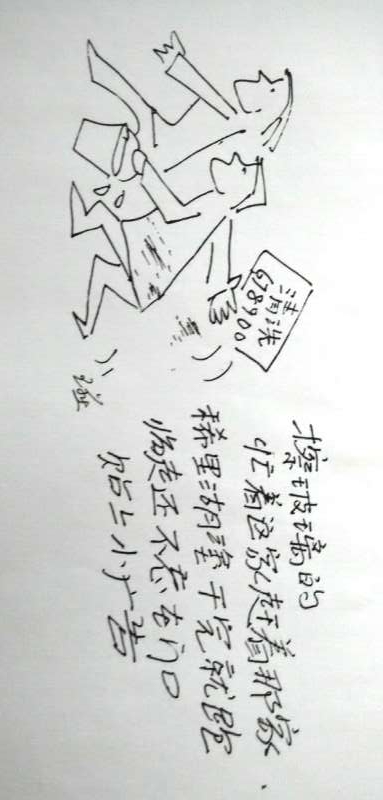 清洗
678900
擦玻璃的
忙着这家赶着那家
稀里湖塗干完就跑
临走还不忘在门口
贴上小广告